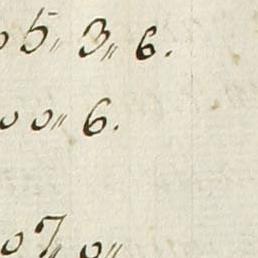 05" 3" 6.
00" 6.
07" 0"